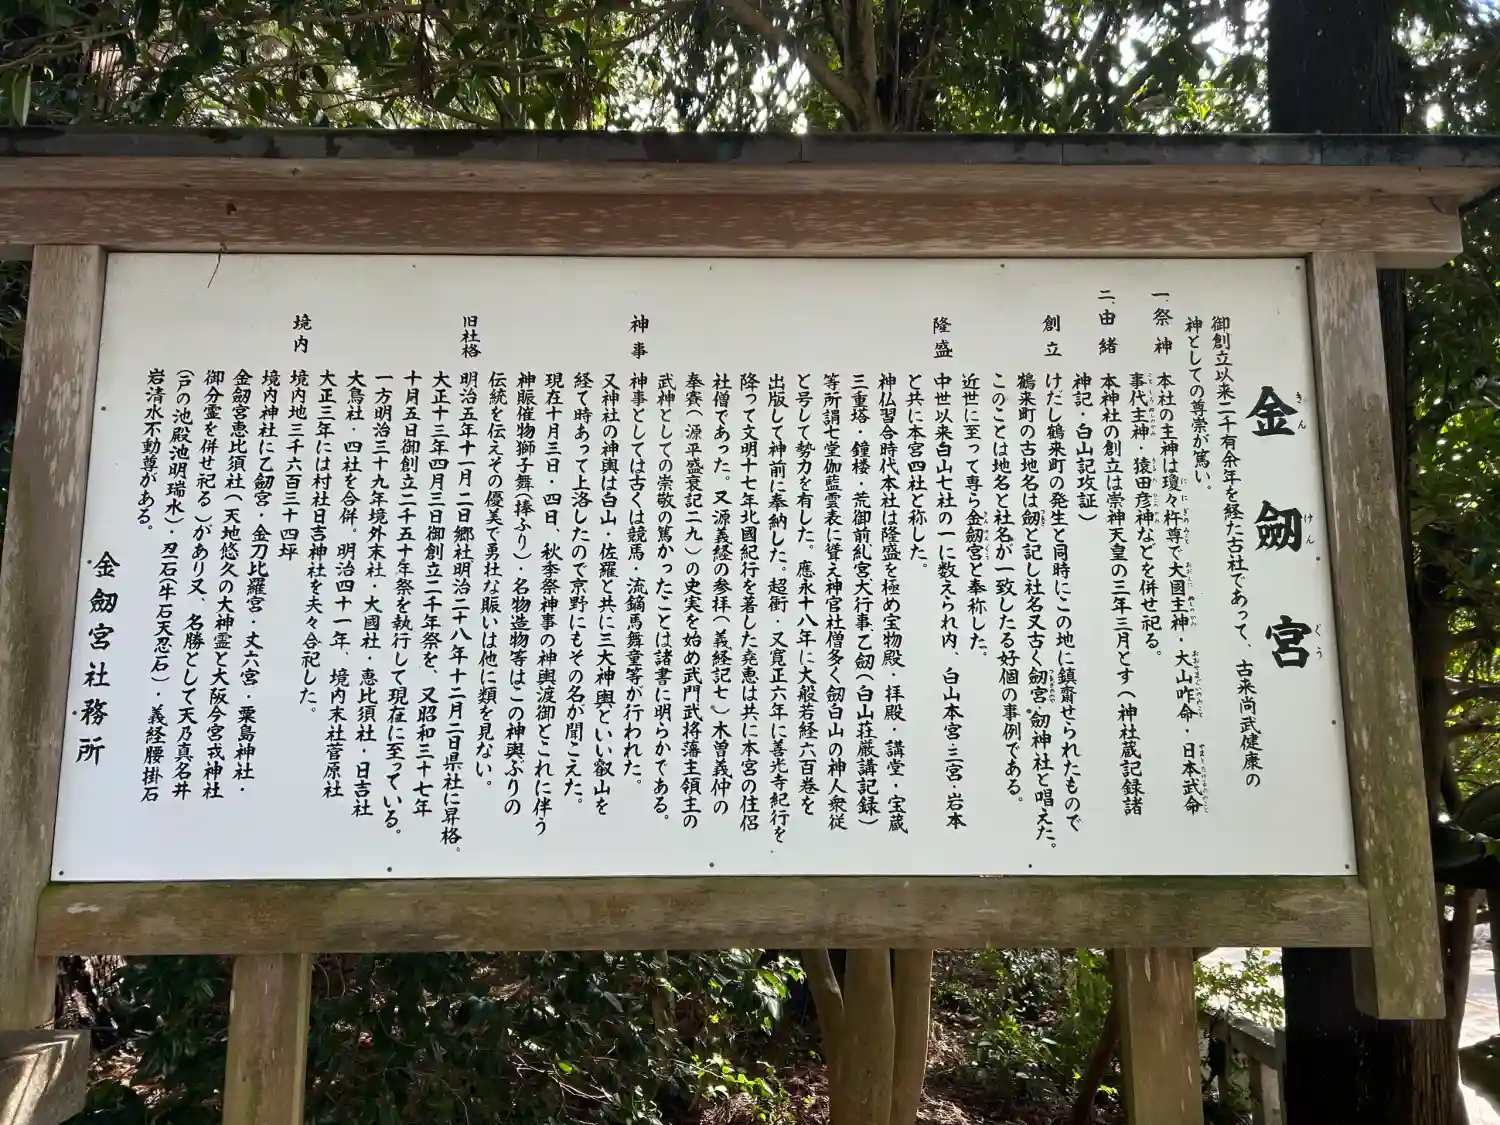 金劔宮
きんけんぐう
御創立以来二千有余年を経た古社であって、古来尚武健康の
神としての尊崇が篤い。
一、祭神 本社の主神は瓊々杵尊で大國主神・大山咋命・日本武命
事代主神・猿田彦神などを併せ祀る。
二、由緒 本神社の創立は崇神天皇の三年三月とす(神社蔵記録諸
神記・白山記攻証)
創立 けだし鶴来町の発生と同時にこの地に鎮齋せられたもので
鶴来町の古地名は劔と記し社名又古く劔宮・劔神社と唱えた。
このことは地名と社名が一致したる好個の事例である。
近世に至って専ら金劔宮と奉称した。
隆盛 中世以来白山七社の一に数えられ内、白山本宮・三宮・岩本
と共に本宮四社と称した。
神仏習合時代本社は隆盛を極め宝物殿・拝殿・講堂・宝蔵
三重塔・鐘楼・荒御前糺宮大行事乙劔(白山荘厳講記録)
等所謂七堂伽藍雲表に聳え神官社僧多く劔白山の神人衆従
と号して勢力を有した。應永十八年に大般若経六百巻を
出版して神前に奉納した。超衛・又寛正六年に善光寺紀行を
降って文明十七年北國紀行を著した堯恵は共に本宮の住侶
社僧であった。又源義経の参拝(義経記七)木曽義仲の
奉賽(源平盛衰記二九)の史実を始め武門武将藩主領主の
武神としての崇敬の篤かったことは諸書に明らかである。
神事 神事としては古くは競馬・流鏑馬舞童等が行われた。
又神社の神輿は白山・佐羅と共に三大神輿といい叡山を
経て時あって上洛したので京野にもその名が聞こえた。
現在十月三日・四日、秋季祭神事の神輿渡御とこれに伴う
神賑催物獅子舞(棒ふり)・名物造物等はこの神輿ぶりの
伝統を伝えその優美で勇壮な賑いは他に類を見ない。
旧社格 明治五年十一月二日郷社明治二十八年十二月二日県社に昇格。
大正十三年四月三日御創立二千年祭を、又昭和三十七年
十月五日御創立二千五十年祭を執行して現在に至っている。
一方明治三十九年境外末社・大國社・恵比須社・日吉社
大鳥社・四社を合併。明治四十一年、境内末社菅原社
大正三年には村社日吉神社を夫々合祀した。
境内 境内地三千六百三十四坪
境内神社に乙劔宮・金刀比羅宮・丈六宮・粟島神社・
金劔宮恵比須社(天地悠久の大神霊と大阪今宮戎神社
御分霊を併せ祀る)があり又、名勝として天乃真名井
(戸の池殿池明瑞水)・忍石(牛石天忍石)・義経腰掛石
岩清水不動尊がある。
金劔宮社務所